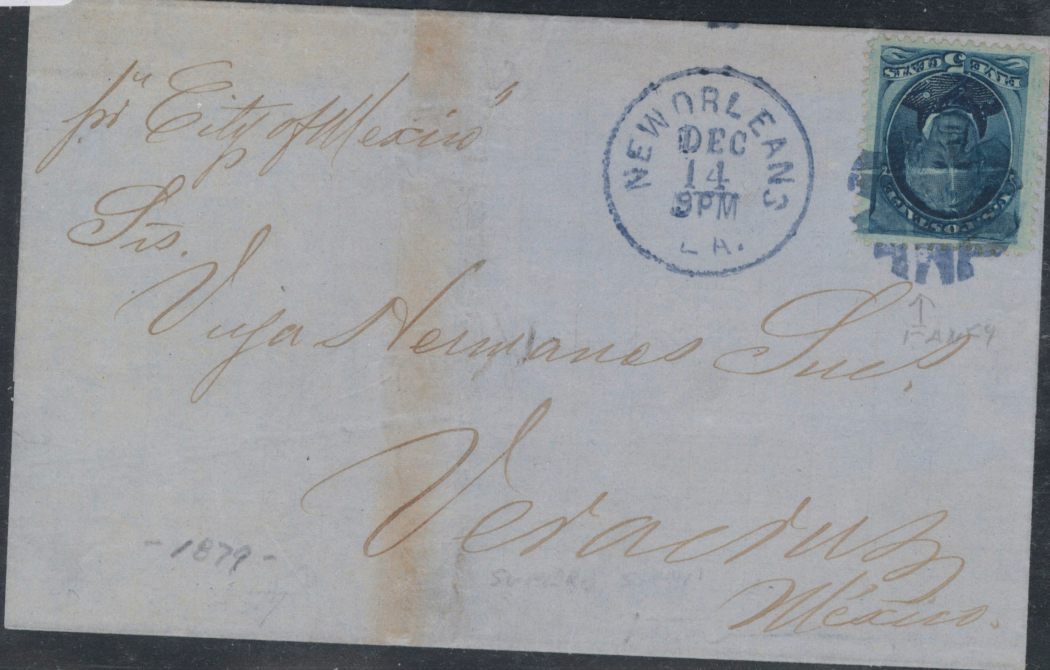 pr "City of Mexico"
NEW ORLEANS
DEC
14
9PM
LA.
U.S. POSTAGE
FIVE 5 CENTS
Srs.
Viya Hermanos Sucs.
Veracruz
México.
- 1879 -